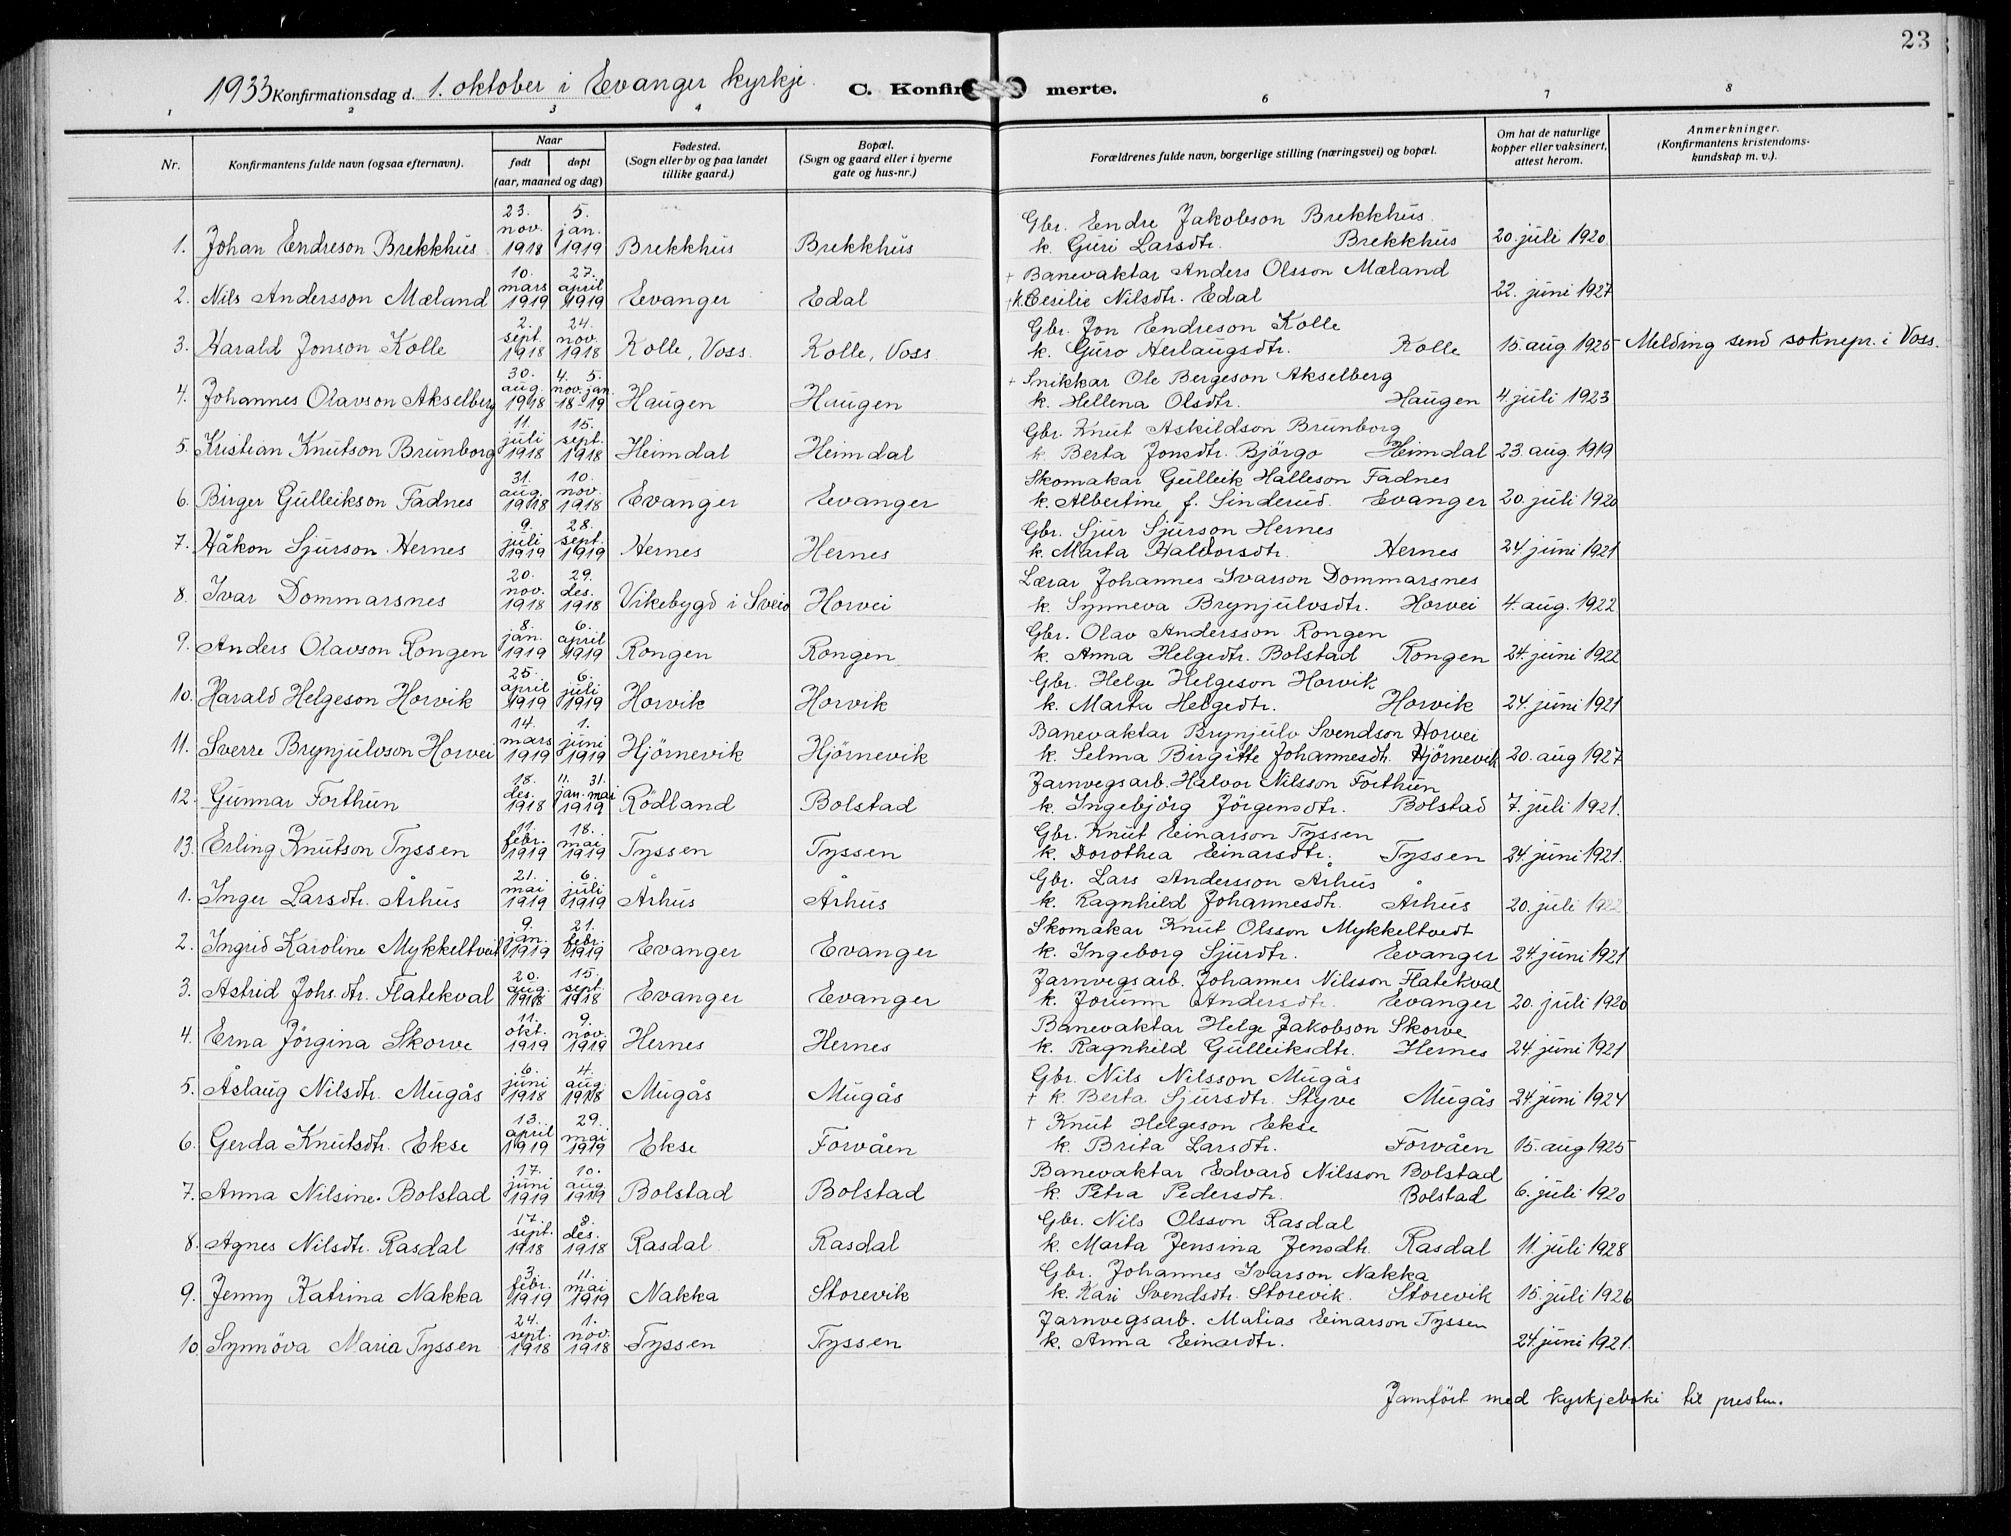 23
1933 Konfirmationsdag d. 1. oktober i Evanger kyrkje. C. Konfirmerte.
1 2 3 4 6 7 8
Nr. Konfirmantens fulde navn (ogsaa efternavn). Naar født døpt (aar, maaned og dag) Fødested. (Sogn eller by og paa landet tillike gaard.) Bopæl. (Sogn og gaard eller i byerne gate og hus-nr.) Forældrenes fulde navn, borgerlige stilling (næringsvei) og bopæl. Om hat de naturlige kopper eller vaksinert, attest herom. Anmerkninger. (Konfirmantens kristendoms-kundskap m. v.).
1. Johan Endreson Brekkhus 23. nov. 1918 5. jan. 1919 Brekkhus Brekkhus Gbr. Endre Jakobson Brekkhus. k. Guri Larsdtr. Brekkhus 20. juli 1920
2. Nils Andersson Mæland 10. mars 1919 27. april 1919 Evanger Edal + Banevaktar Anders Olsson Mæland +k. Cesilie Nilsdtr. Edal 22. juni 1927
3. Harald Jonson Kolle 2. sept. 1918 24. nov. 1918 Kolle, Voss. Kolle, Voss Gbr. Jon Endreson Kolle k. Guro Herlaugsdtr. Kolle 15. aug 1925 Melding send soknepr. i Voss.
4. Johannes Olavson Akselberg 30. aug. 1918 4. nov. 18 5. jan. 19 Haugen Haugen + Snikkar Ole Bergeson Akselberg k. Hellena Olsdtr. Haugen 4. juli 1923
5. Kristian Knutson Brunborg 11. juli 1918 15. sept. 1918 Heimdal Heimdal Gbr. Knut Askildson Brunborg k. Berta Jonsdtr. Björgo Heimdal 23. aug. 1919
6. Birger Gulleikson Fadnes 31. aug. 1918 10. nov. 1918 Evanger Evanger Skomakar Gulleik Halleson Fadnes k. Albertine f. Sinderud. Evanger 20. juli 1920
7. Håkon Sjurson Hernes 9. juli 1919 28. sept. 1919 Hernes Hernes Gbr. Sjur Sjurson Hernes k. Marta Haldorsdtr. Hernes 24 juni 1921
8. Ivar Dommarsnes 20. nov. 1918 29. des. 1918 Vikebygd i Sveio Horvei Lærar Johannes Ivarson Dommarsnes k. Synneva Brynjulvsdtr. Horvei 4. aug. 1922
9. Anders Olavson Rongen 8. jan. 1919 6. april 1919 Rongen Rongen Gbr. Olav Andersson Rongen k. Anna Helgedtr. Bolstad Rongen 24. juni 1922
10. Harald Helgeson Horvik 25. april 1919 6. juli 1919 Horvik Horvik Gbr. Helge Helgeson Horvik k. Marta Helgedtr. Horvik 24. juni 1921
11. Sverre Brynjulvson Horvei 14. mars 1919 1. juni 1919 Hjörnevik Hjörnevik Banevaktar Brynjulv Svendson Horvei k. Selma Birgitte Johannesdtr. Hjörnevik 20. aug 1927
12. Gunnar Forthun 18. des. 1918 11. jan. 31. mai 1919 Rödland Bolstad Jarnvegsarb. Halvor Nilsson Forthun k. Ingebjörg Jörgensdtr. Bolstad 7. juli 1921.
13. Erling Knutson Tyssen 11. febr. 1919 18. mai 1919 Tyssen Tyssen Gbr. Knut Einarson Tyssen k. Dorothea Einarsdtr. Tyssen 24. juni 1921.
1. Inger Larsdtr. Århus 21. mai 1919 6. juli 1919 Århus Århus Gbr. Lars Andersson Århus k. Ragnhild Johannesdtr. Århus 20. juli 1922
2. Ingrid Karoline Mykkeltveit 9. jan. 1919 21. febr. 1919 Evanger Evanger Skomakar Knut Olsson Mykkeltvedt k. Ingeborg Sjurdtr. Evanger 24 juni 1921
3. Astrid Johs.dtr. Flatekval 20. aug. 1918 15. sept. 1918 Evanger Evanger Jarnvegsarb. Johannes Nilsson Flatekval k. Jorunn Andersdtr. Evanger 20. juli 1920
4. Erna Jörgina Skorve 11. okt. 1919 9. nov. 1919 Hernes Hernes Banevaktar Helge Jakobson Skorve k. Ragnhild Gulleiksdtr. Hernes 24. juni 1921
5. Åslaug Nilsdtr. Mugås 6. juni 1918 4. aug. 1918 Mugås Mugås Gbr. Nils Nilsson Mugås + k. Berta Sjursdtr. Styve Mugås 24 juni 1924
6. Gerda Knutsdtr. Ekse 13. april 1919 29. mai 1919 Ekse Forvåen + Knut Helgeson Ekse k. Brita Larsdtr. Forvåen 15. aug 1925
7. Anna Nilsine Bolstad 17. juni 1919 10. aug 1919 Bolstad Bolstad Banevaktar Edvard Nilsson Bolstad k. Petra Pedersdtr. Bolstad 6. juli 1920
8. Agnes Nilsdtr. Rasdal 17. sept. 1918 8. des. 1918 Rasdal Rasdal Gbr. Nils Olsson Rasdal k. Marta Jensina Jensdtr. Rasdal 11. juli 1928
9. Jenny Katrina Nakka 3. febr. 1919 11. mai 1919 Nakka Storevik Gbr. Johannes Ivarson Nakka k. Kari Svendsdtr. Storevik. Storevik 15. juli 1926
10 Synnöva Maria Tyssen 24. sept. 1918 1. nov. 1918 Tyssen Tyssen Jarnvegsarb. Matias Einarson Tyssen k. Anna Einardtr. 24. juni 1921.
Jamfört med kyrkjeboki til presten.